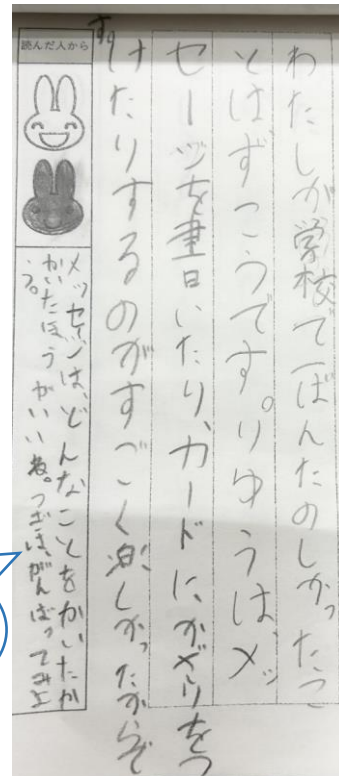 わたしが学校で一ばんたのしかったこ
とはずこうです。りゆうは、メッ
セージを書いたり、カードに、かざりをつ
けたりするのがすごく楽しかったからで
す。
読んだ人から
メッセージは、どんなことをかいたか
かいたほうがいいね。つぎは、がんばってみよ
う。